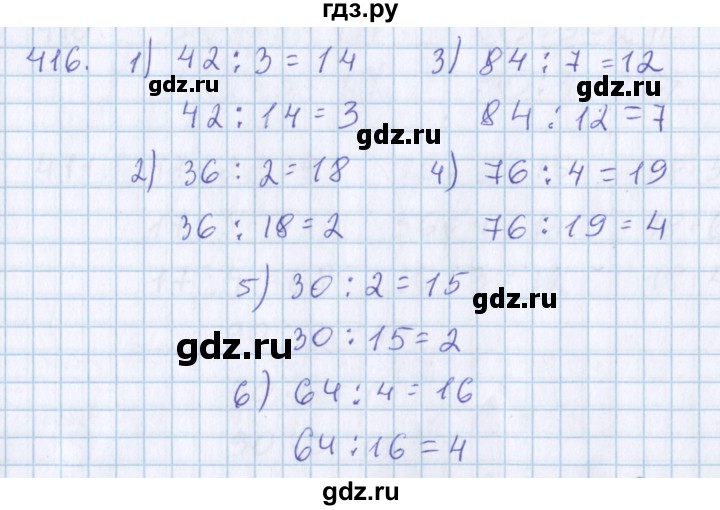 гдз.ру
416. 1) 42 : 3 = 14 3) 84 : 7 = 12
gdz.ru gdz.ru
42 : 14 = 3 84 : 12 = 7
gdz.ru
2) 36 : 2 = 18 4) 76 : 4 = 19
36 : 18 = 2 76 : 19 = 4
gdz.ru
5) 30 : 2 = 15
gdz.ru
30 : 15 = 2
gdz.ru
6) 64 : 4 = 16
64 : 16 = 4
gdz.ru